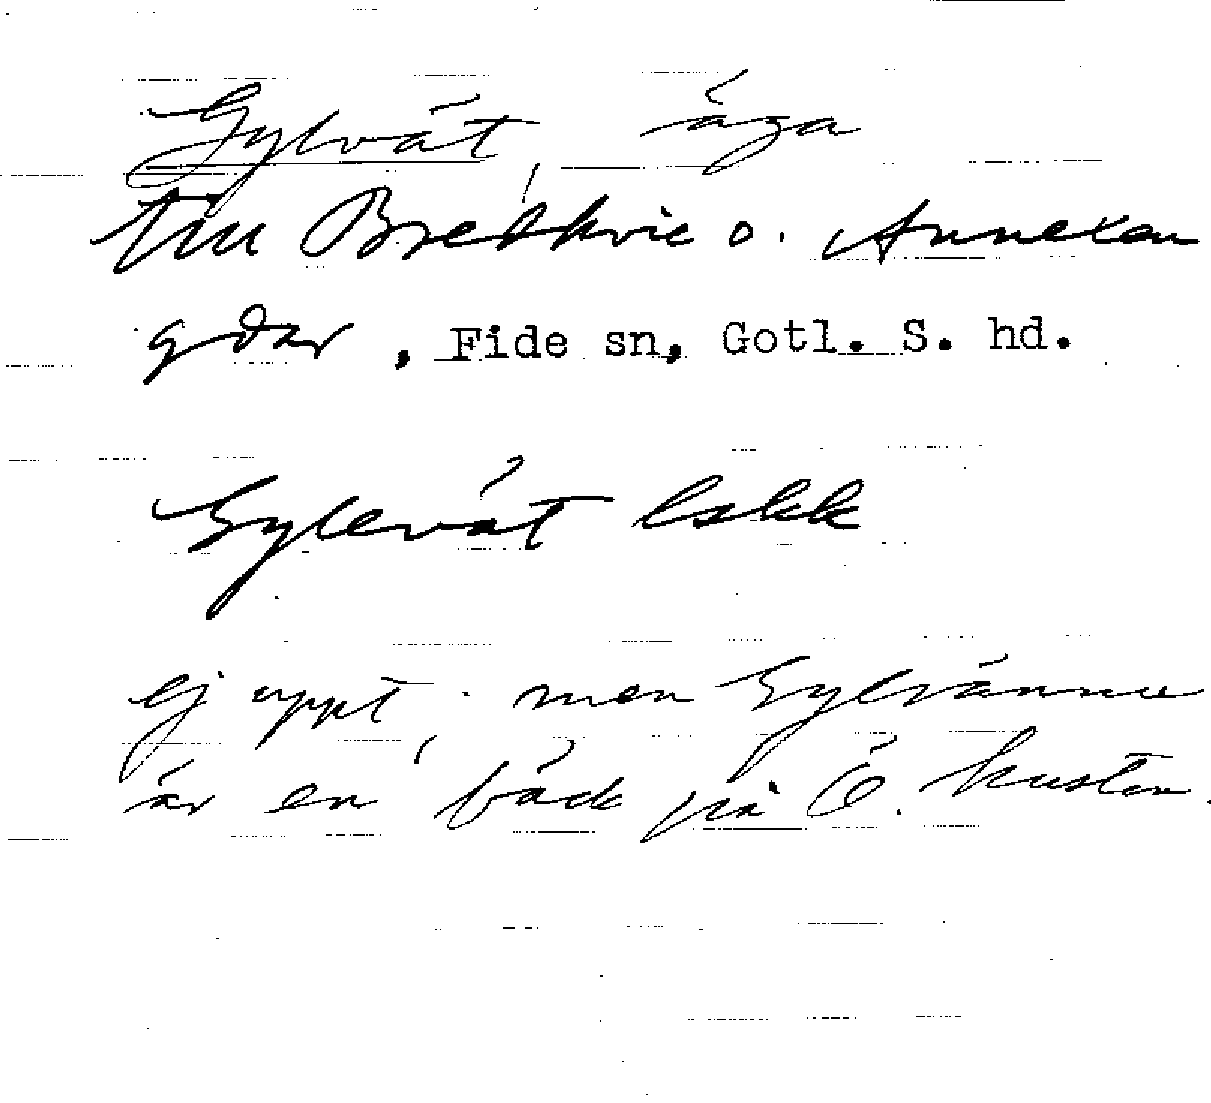 Gylvät, äga
till Bretkvie o. Annexen
gdar, Fide sn, Gotl. S. hd.
Gylevát lskk
ej uppt, men Gylvánne
är en båck på Ö. kusten.